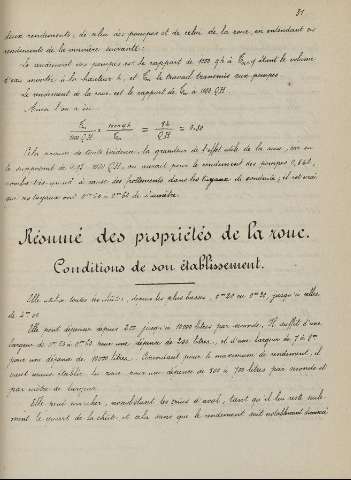 31
deux rendements, de celui des pompes et de celui de la roue, en entendant ces
rendements de la manière suivante :
Le rendement des pompes est le rapport de 1000 q h à Em, q étant le volume
d'eau montée à la hauteur h, et Em le travail transmis aux pompes
Le rendement de la roue est le rapport de Em à 1000 QH.
Ainsi l'on a eu
Em / 1000 QH × 1000 q h / Em = q h / QH = 0,50
de toute évidence, la grandeur de l'effet utile de la roue, car en
le supposant de 0,85 1000 QH, on aurait pour le rendement des pompes
à cause des frottements dans les tuyaux de conduite ; il est vrai
que ces tuyaux ont de diamètre.
Résumé des propriétés de la roue.
Conditions de son établissement.
Elle utilise toutes les chutes, depuis les plus basses, 0m20 ou jusqu'à celles
de
Elle peut dépenser depuis 200 jusqu'à 10000 litres par seconde. Il suffit d'une
largeur de pour une dépense de 200 litres, et d'une largeur de 7 à 8m
pour une dépense de 10000 litres. Cependant pour le maximum de rendement, il
vaut mieux établir la roue pour une dépense de 500 à 700 litres par seconde et
par mètre de largeur.
Elle peut marcher, nonobstant les crues d'aval, tant qu'il lui reste seule-
ment le quart de la chute, et cela sans que le rendement soit notablement diminué